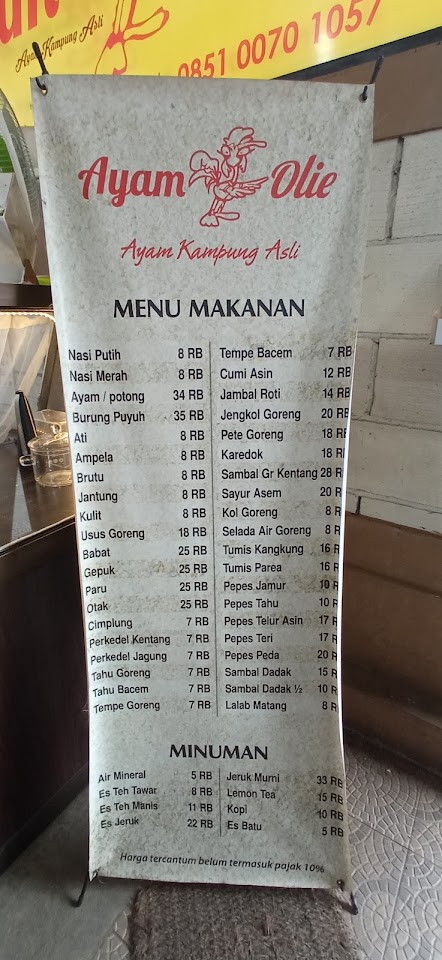 Ayam Kampung Asli
0851 0070 1057
Ayam Olie
Ayam Kampung Asli
MENU MAKANAN
Nasi Putih 8 RB
Nasi Merah 8 RB
Ayam / potong 34 RB
Burung Puyuh 35 RB
Ati 8 RB
Ampela 8 RB
Brutu 8 RB
Jantung 8 RB
Kulit 8 RB
Usus Goreng 18 RB
Babat 25 RB
Gepuk 25 RB
Paru 25 RB
Otak 25 RB
Cimplung 7 RB
Perkedel Kentang 7 RB
Perkedel Jagung 7 RB
Tahu Goreng 7 RB
Tahu Bacem 7 RB
Tempe Goreng 7 RB
Tempe Bacem 7 RB
Cumi Asin 12 RB
Jambal Roti 14 RB
Jengkol Goreng 20 RB
Pete Goreng 18 RB
Karedok 18 RB
Sambal Gr Kentang 28 R
Sayur Asem 20 R
Kol Goreng 8 R
Selada Air Goreng 8 R
Tumis Kangkung 16 R
Tumis Parea 16 R
Pepes Jamur 10 R
Pepes Tahu 10 R
Pepes Telur Asin 17 R
Pepes Teri 17 R
Pepes Peda 20 R
Sambal Dadak 15 R
Sambal Dadak ½ 10 R
Lalab Matang 8 R
MINUMAN
Air Mineral 5 RB
Es Teh Tawar 8 RB
Es Teh Manis 11 RB
Es Jeruk 22 RB
Jeruk Murni 33 RB
Lemon Tea 15 RB
Kopi 10 RB
Es Batu 5 RB
Harga tercantum belum termasuk pajak 10%